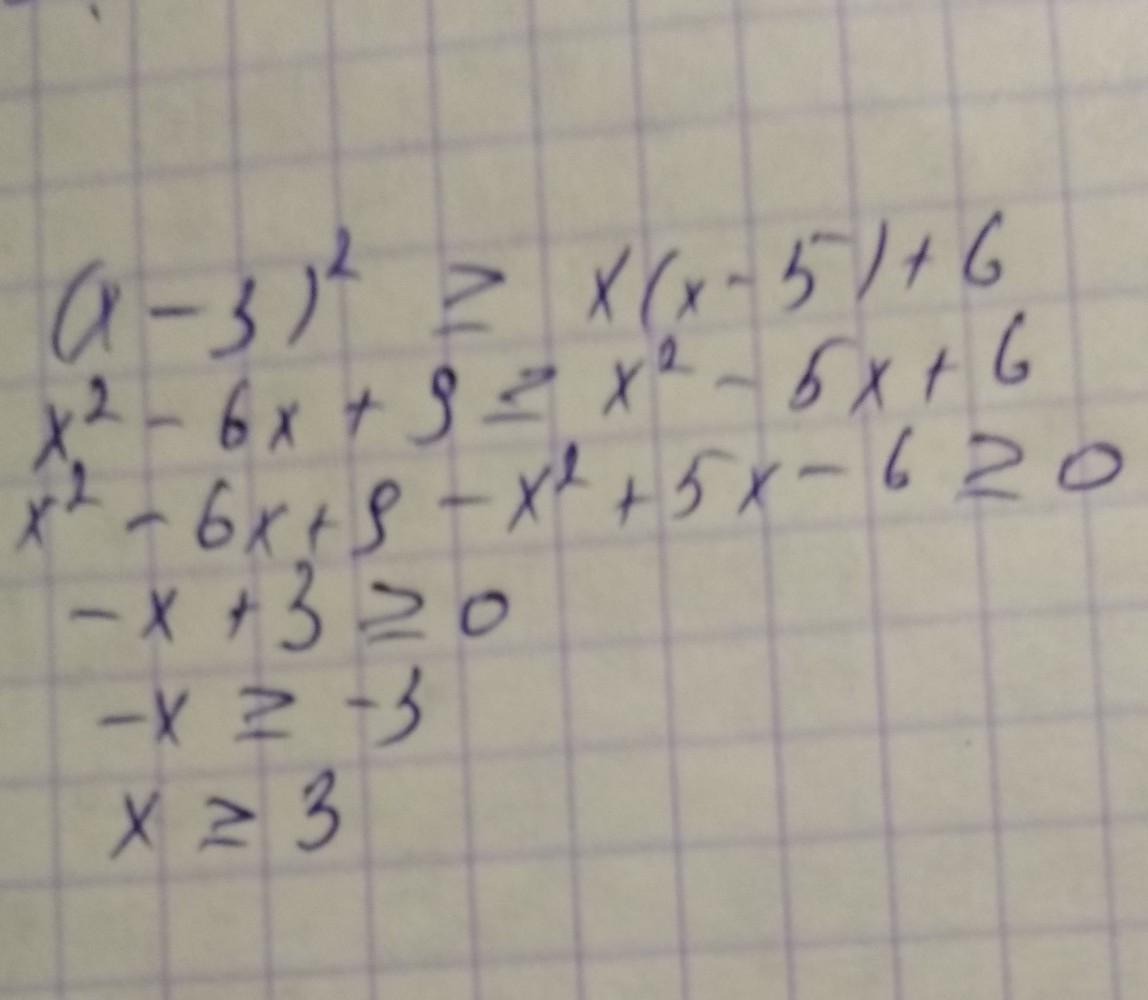 (x - 3)² ≥ x(x - 5) + 6
x² - 6x + 9 ≥ x² - 5x + 6
x² - 6x + 9 - x² + 5x - 6 ≥ 0
-x + 3 ≥ 0
-x ≥ -3
x ≥ 3